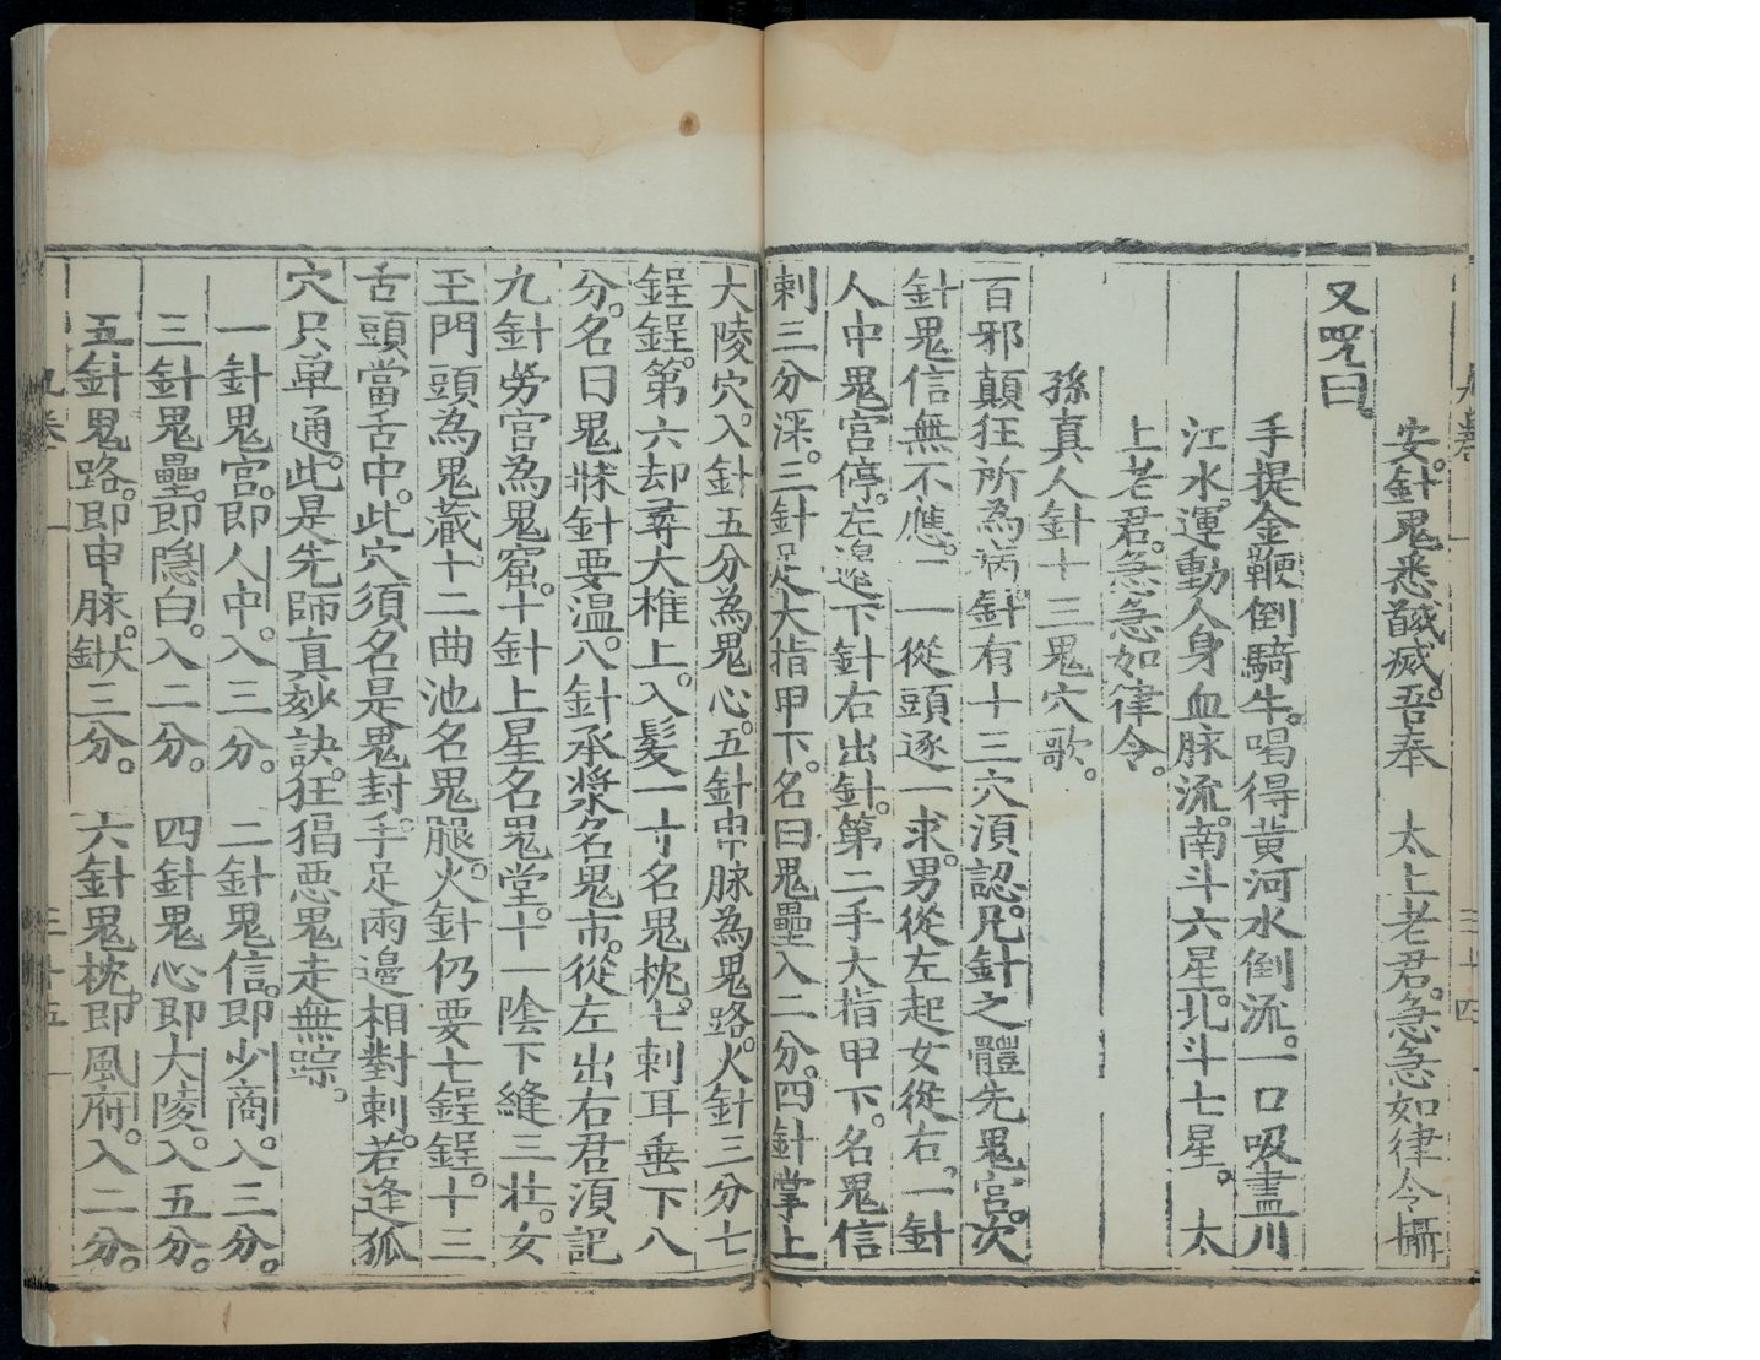 安。針鬼悉馘滅。吾奉　太上老君。急急如律令攝
又呪曰。
手提金鞭倒騎牛。喝得黄河水倒流。一口吸盡川
江水。運動人身血脉流。南斗六星。北斗七星。太
上老君。急急如律令。
孫真人針十三鬼穴歌。
百邪顛狂所為病。針有十三穴湏認。凡針之體先鬼宫。次
針鬼信無不應。一一從頭逐一求。男從左起女從右。一針
人中鬼宫停。左邊下針右出針。第二手大指甲下。名鬼信
刺三分深。三針足大指甲下。名曰鬼壘入二分。四針掌上
大陵穴。入針五分為鬼心。五針申脉為鬼路。火針三分七
鋥鋥。第六却尋大椎上。入髪一寸名鬼枕。七刺耳垂下八
分。名曰鬼牀針要温。八針承漿名鬼市。從左出右君湏記
九針勞宫為鬼窟。十針上星名鬼堂。十一陰下縫三壯。女
玉門頭為鬼藏十二曲池名鬼腿。火針仍要七鋥鋥。十三
舌頭當舌中。此穴須名是鬼封。手足兩邊相對刺。若逢狐
穴只单通。此是先師真妙訣。狂猖惡鬼走無踪。
一針鬼宫。即人中。入三分。　二針鬼信。即少商。入三分。
三針鬼壘。即隐白。入二分。　四針鬼心即大陵。入五分。
五針鬼路。即申脉。火針三分。　六針鬼枕。即風府。入二分。
九卷　三十五